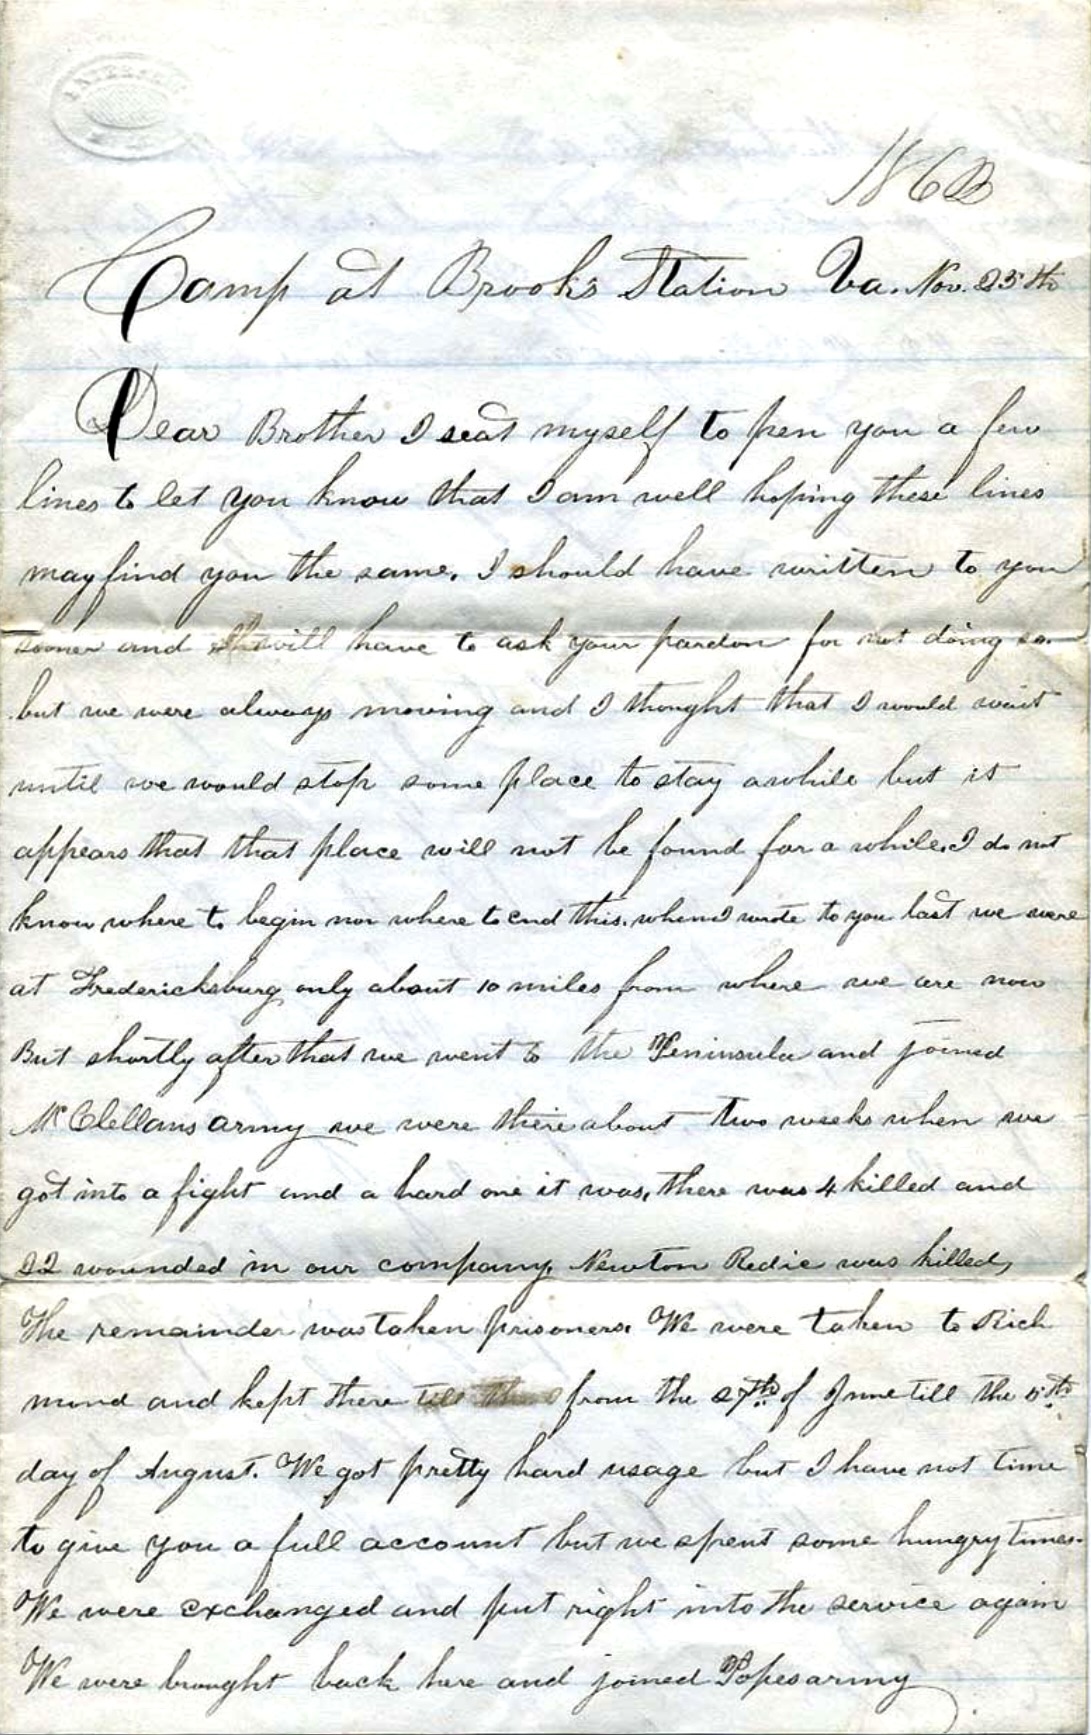 1862
Camp at Brook's Station Va. Nov. 25th
Dear Brother I seat myself to pen you a few
lines to let you know that I am well hoping these lines
may find you the same. I should have written to you
sooner and will have to ask your pardon for not doing so
but we were always moving and I thought that I would wait
until we would stop some place to stay awhile but it
appears that that place will not be found for a while. I do not
know where to begin nor where to end this. when I wrote to you last we were
at Fredericksburg only about 10 miles from where we are now
But shortly after that we went to the Peninsula and joined
McClellans army we were there about two weeks when we
got into a fight and a hard one it was, there was 4 killed and
22 wounded in our company, Newton Redie was killed,
The remainder was taken prisoners. We were taken to Rich
mond and kept there from the 27th of June till the 5th
day of August. We got pretty hard usage but I have not time
to give you a full account but we spent some hungry times.
We were exchanged and put right into the service again
We were brought back here and joined Popes army